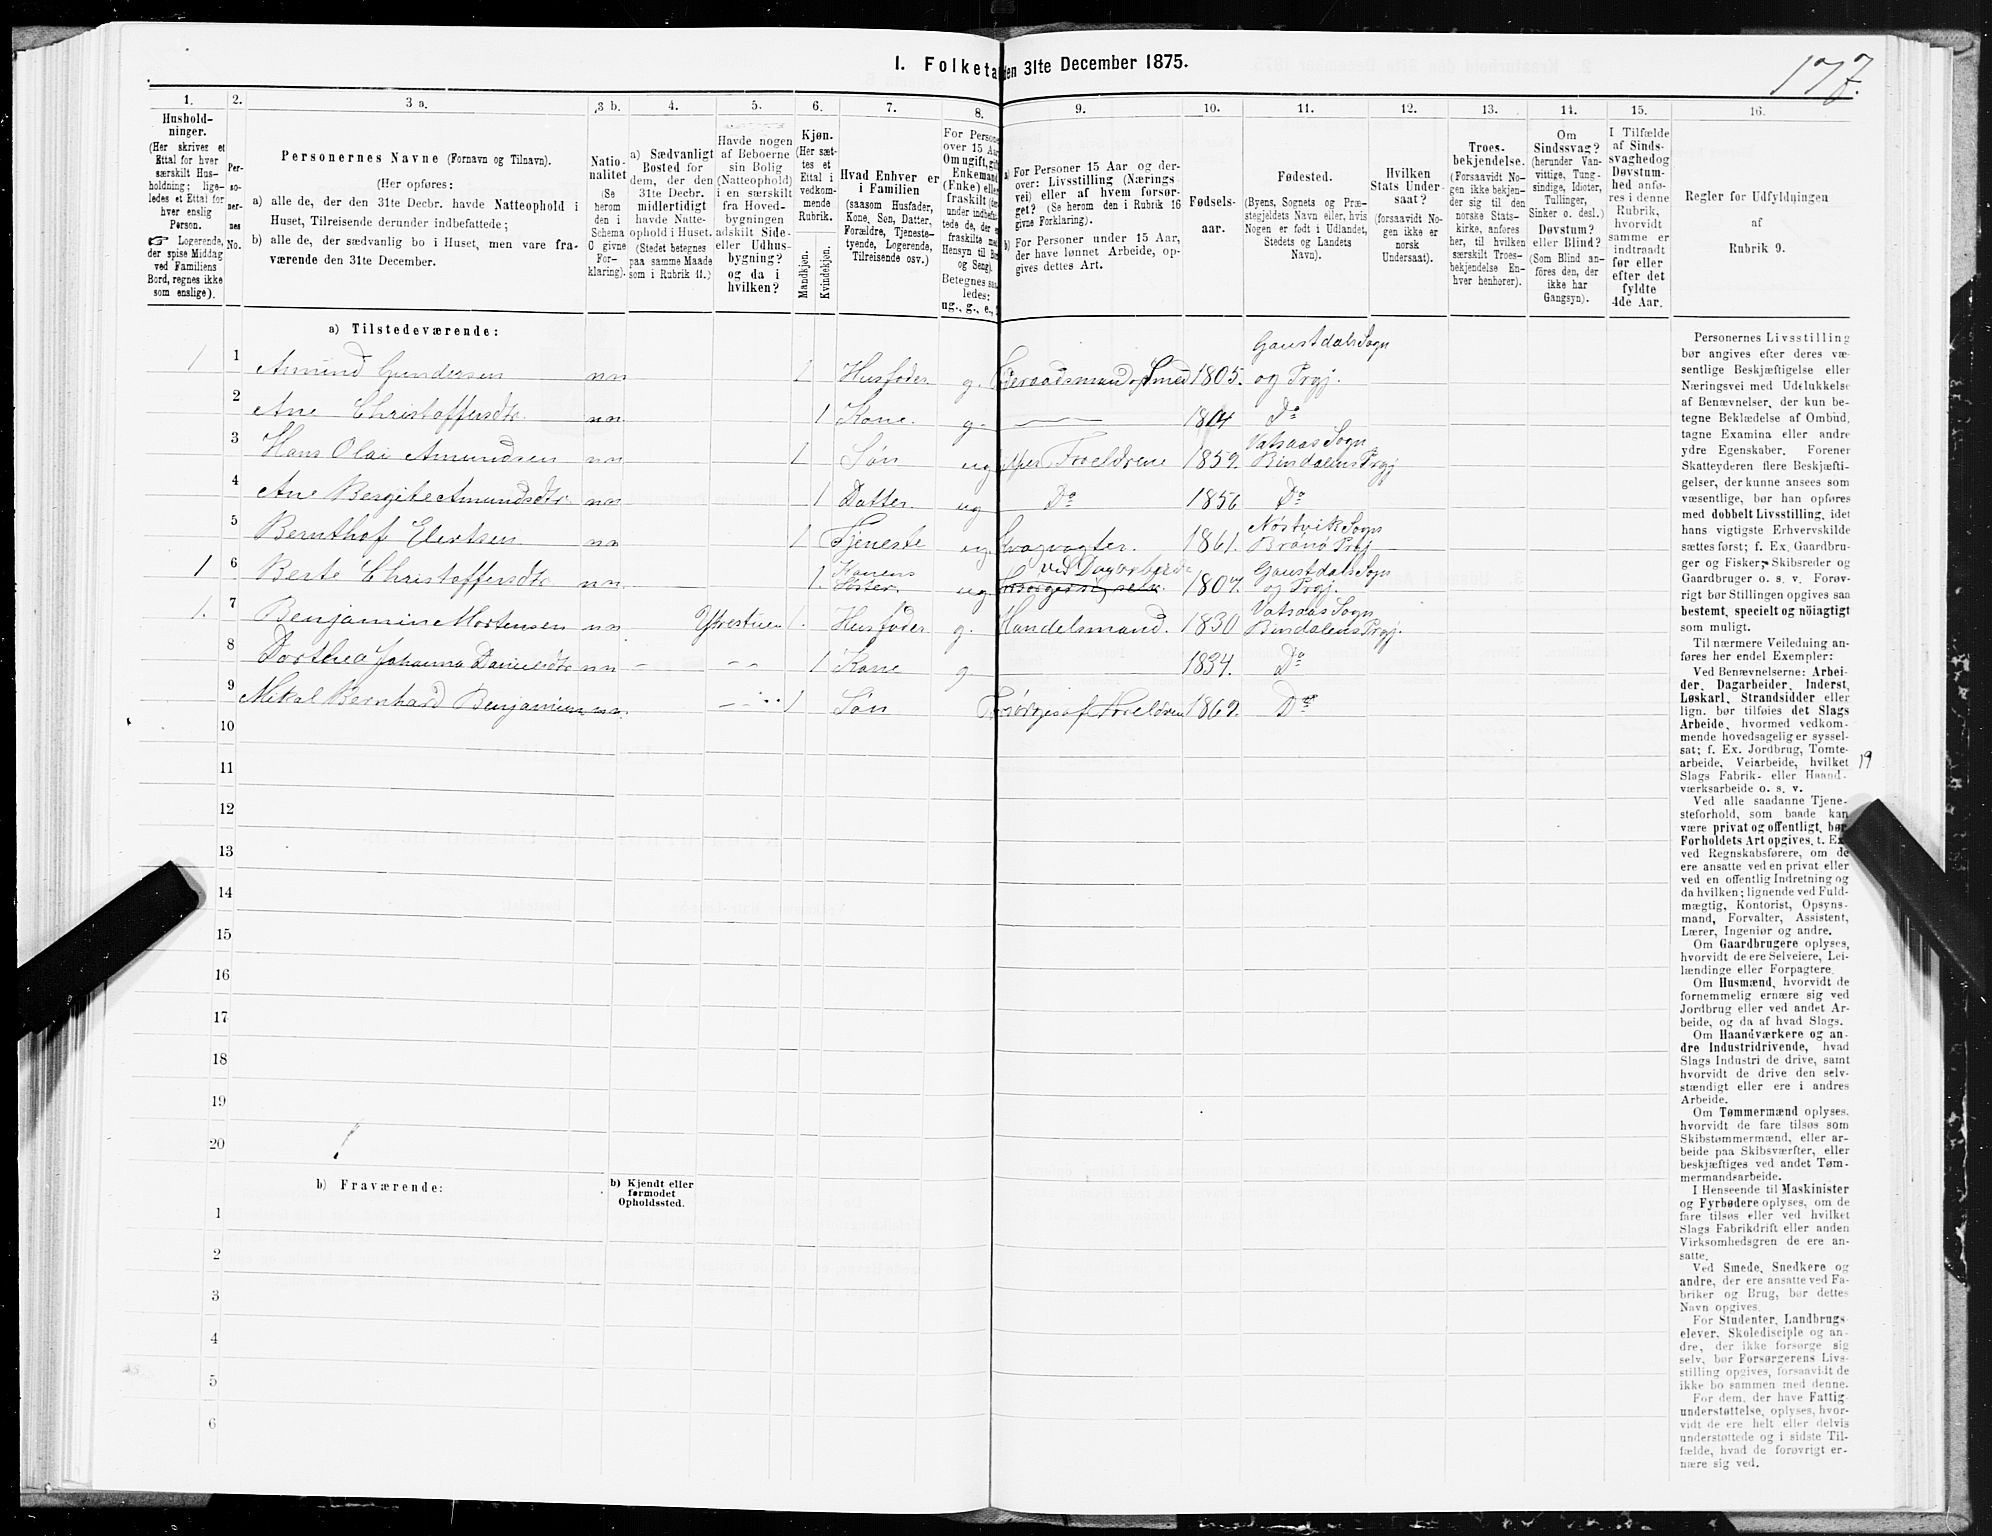 177.
I. Folketa den 31te December 1875.
1. 2. 3 a. 3 b. 4. 5. 6. 7. 8. 9. 10. 11. 12. 13. 14. 15. 16.
Hushold-
ninger.
(Her skrives et
Ettal for hver
særskilt Hus-
holdning; lige-
ledes et Ettal for
hver enslig
Person.
☞ Logerende,
der spise Middag
ved Familiens
Bord, regnes ikke
som enslige).
Per-
so-
ner-
nes
No.
Personernes Navne (Fornavn og Tilnavn).
(Her opføres:
a) alle de, der den 31te Decbr. havde Natteophold i
Huset, Tilreisende derunder indbefattede;
b) alle de, der sædvanlig bo i Huset, men vare fra-
værende den 31te December.
Natio-
nalitet
(Se
herom
den i
Schema
C givne
For-
klaring).
a) Sædvanligt
Bosted for
dem, der den
31te Decbr.
midlertidigt
havde Natte-
ophold i Huset.
(Stedet betegnes
paa samme Maade
som i Rubrik 11.)
Havde nogen
af Beboerne
sin Bolig
(Natteophold)
i en særskilt
fra Hoved-
bygningen
adskilt Side-
eller Udhus-
bygning?
og da i
hvilken?
Kjøn.
(Her sæt-
tes et
Ettal i
vedkom-
mende
Rubrik.
Mandkjøn.
Kvindekjøn.
Hvad Enhver er
i Familien
(saasom Husfader,
Kone, Søn, Datter,
Forældre, Tjeneste-
tyende, Logerende,
Tilreisende osv.)
For Perso
over 15 Aa
Om ugift, gift
Enkemand
(Enke) elle
fraskilt
under indbefat-
tede de, der e
fraskilte m
Hensyn til Bo
og Seng).
Betegnes saa
ledes:
ug., g., e.,
a) For Personer 15 Aar og der-
over: Livsstilling (Nærings-
vei) eller af hvem forsør-
get? (Se herom den i Rubrik 16
givne Forklaring).
b) For Personer under 15 Aar,
der have lønnet Arbeide, op-
gives dettes Art.
Fødsels-
aar.
Fødested.
(Byens, Sognets og Præ-
stegjeldets Navn eller, hvis
Nogen er født i Udlandet,
Stedets og Landets
Navn).
Hvilken
Stats Under-
saat?
(forsaavidt No-
gen ikke er
norsk
Undersaat).
Troes-
bekjendelse.
(Forsaavidt No-
gen ikke bekjen-
der sig til den
norske Stats-
kirke, anføres
her, til hvilken
særskilt Troes-
bekjendelse En-
hver henhører).
Om
Sindssvag?
(herunder Van-
vittige, Tung-
sindige, Idioter,
Tullinger,
Sinker o. desl.)
Døvstum?
eller Blind?
(Som Blind an-
føres den, der
ikke har
Gangsyn).
I Tilfælde
af Sinds-
svaghed og
Døvstum-
hed anfø-
res i denne
Rubrik,
hvorvidt
samme er
indtraadt
før eller
efter det
fyldte
4de Aar.
Regler for Udfyldningen
af
Rubrik 9.
a) Tilstedeværende:
1 1 Amund Gundersen nn 1 Husfader g. Føderaadsmand og Smed 1805. Gaustdals Sogn og Prgj.
2 Ane Christoffersdtr nn 1 Kone g. 1814 Do
3 Hans Olai Amundsen nn 1 Søn ug hjelper Forældrene 1859. Vatsaas Sogn Bindalens Prgj
4 Ane Bergite Amundsdtr nn 1 Datter ug Do 1856 Do
5 Bernthof Elertsen nn 1 Tjeneste ug. Kvægvogter. 1861. Nøstvik Sogn Brønø Prgj.
1 6 Berte Christoffersdtr nn 1 Konens Søster. ug ved Dagarbeide 1807. Gaustdals Sogn og Prgj.
1. 7 Benjamin Mortensen nn Yttrestuen 1. Husfader g. Handelsmand. 1830 Vatsaas Sogn Bindalens Prgj.
8 Dorthea Johanna Danielsdtr nn — — — 1 Kone g. 1834. Do
9 Mikal Bernhard Benjaminsen nn. — — 1 Søn Forsørges af Forældren 1869. Do
10
11
12
13
14
15
16
17
18
19
20
b) Fraværende:
b) Kjendt eller
formodet
Opholdssted.
1
2
3
4
5
6
Personernes Livsstilling
bør angives efter deres væ-
sentlige Beskjæftigelse eller
Næringsvei med Udelukkelse
af Benævnelser, der kun be-
tegne Beklædelse af Ombud,
tagne Examina eller andre
ydre Egenskaber. Forener
Skatteyderen flere Beskjæfti-
gelser, der kunne ansees som
væsentlige, bør han opføres
med dobbelt Livsstilling, idet
hans vigtigste Erhvervskilde
sættes først; f. Ex. Gaardbru-
ger og Fisker; Skibsreder og
Gaardbruger o. s. v. Forøv-
rigt bør Stillingen opgives saa
bestemt, specielt og nøiagtigt
som muligt.
Til nærmere Veiledning an-
føres her endel Exempler:
Ved Benævnelserne: Arbei-
der, Dagarbeider, Inderst,
Løskarl, Strandsidder eller
lign. bør tilføies det Slags
Arbeide, hvormed vedkom-
mende hovedsagelig er syssel-
sat; f. Ex. Jordbrug, Tomte-
arbeide, Veiarbeide, hvilket
Slags Fabrik- eller Haand-
værksarbeide o. s. v.
19
Ved alle saadanne Tjene-
steforhold, som baade kan
være privat og offentligt, bør
Forholdets Art opgives, t. Ex.
ved Regnskabsførere, om de
ere ansatte ved en privat eller
ved en offentlig Indretning og
da hvilken; lignende ved Fuld-
mægtig, Kontorist, Opsyns-
mand, Forvalter, Assistent,
Lærer, Ingeniør og andre.
Om Gaardbrugere oplyses,
hvorvidt de ere Selveiere, Lei-
lændinge eller Forpagtere.
Om Husmænd, hvorvidt de
fornemmelig ernære sig ved
Jordbrug eller ved andet Ar-
beide, og da af hvad Slags.
Om Haandværkere og an-
dre Industridrivende, hvad
Slags Industri de drive, samt
hvorvidt de drive den selv-
stændigt eller ere i andres
Arbeide.
Om Tømmermænd oplyses,
hvorvidt de fare tilsøs som
Skibstømmermænd, eller ar-
beide paa Skibsværfter, eller
beskjæftiges ved andet Tøm-
mermandsarbeide.
I Henseende til Maskinister
og Fyrbødere oplyses, om de
fare tilsøs eller ved hvilket
Slags Fabrikdrift eller anden
Virksomhedsgren de ere an-
satte.
Ved Smede, Snedkere og
andre, der ere ansatte ved Fa-
briker og Brug, bør dettes
Navn opgives.
For Studenter, Landbrugs-
elever, Skoledisciple og an-
dre, der ikke forsørge sig
selv, bør Forsørgerens Livs-
stilling opgives, forsaavidt de
ikke bo sammen med denne.
For dem, der have Fattig-
understøttelse, oplyses, hvor-
vidt de ere helt eller delvis
understøttede og i sidste Til-
fælde, hvad de forøvrigt er-
nære sig ved.